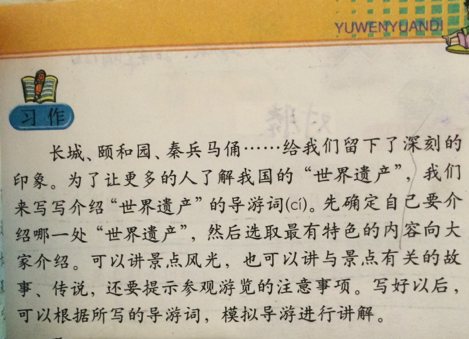 YUWENYUANDI
习作
长城、颐和园、秦兵马俑……给我们留下了深刻的
印象。为了让更多的人了解我国的“世界遗产”，我们
来写写介绍“世界遗产”的导游词(cí)。先确定自己要介
绍哪一处“世界遗产”，然后选取最有特色的内容向大
家介绍。可以讲景点风光，也可以讲与景点有关的故
事、传说，还要提示参观游览的注意事项。写好以后，
可以根据所写的导游词，模拟导游进行讲解。